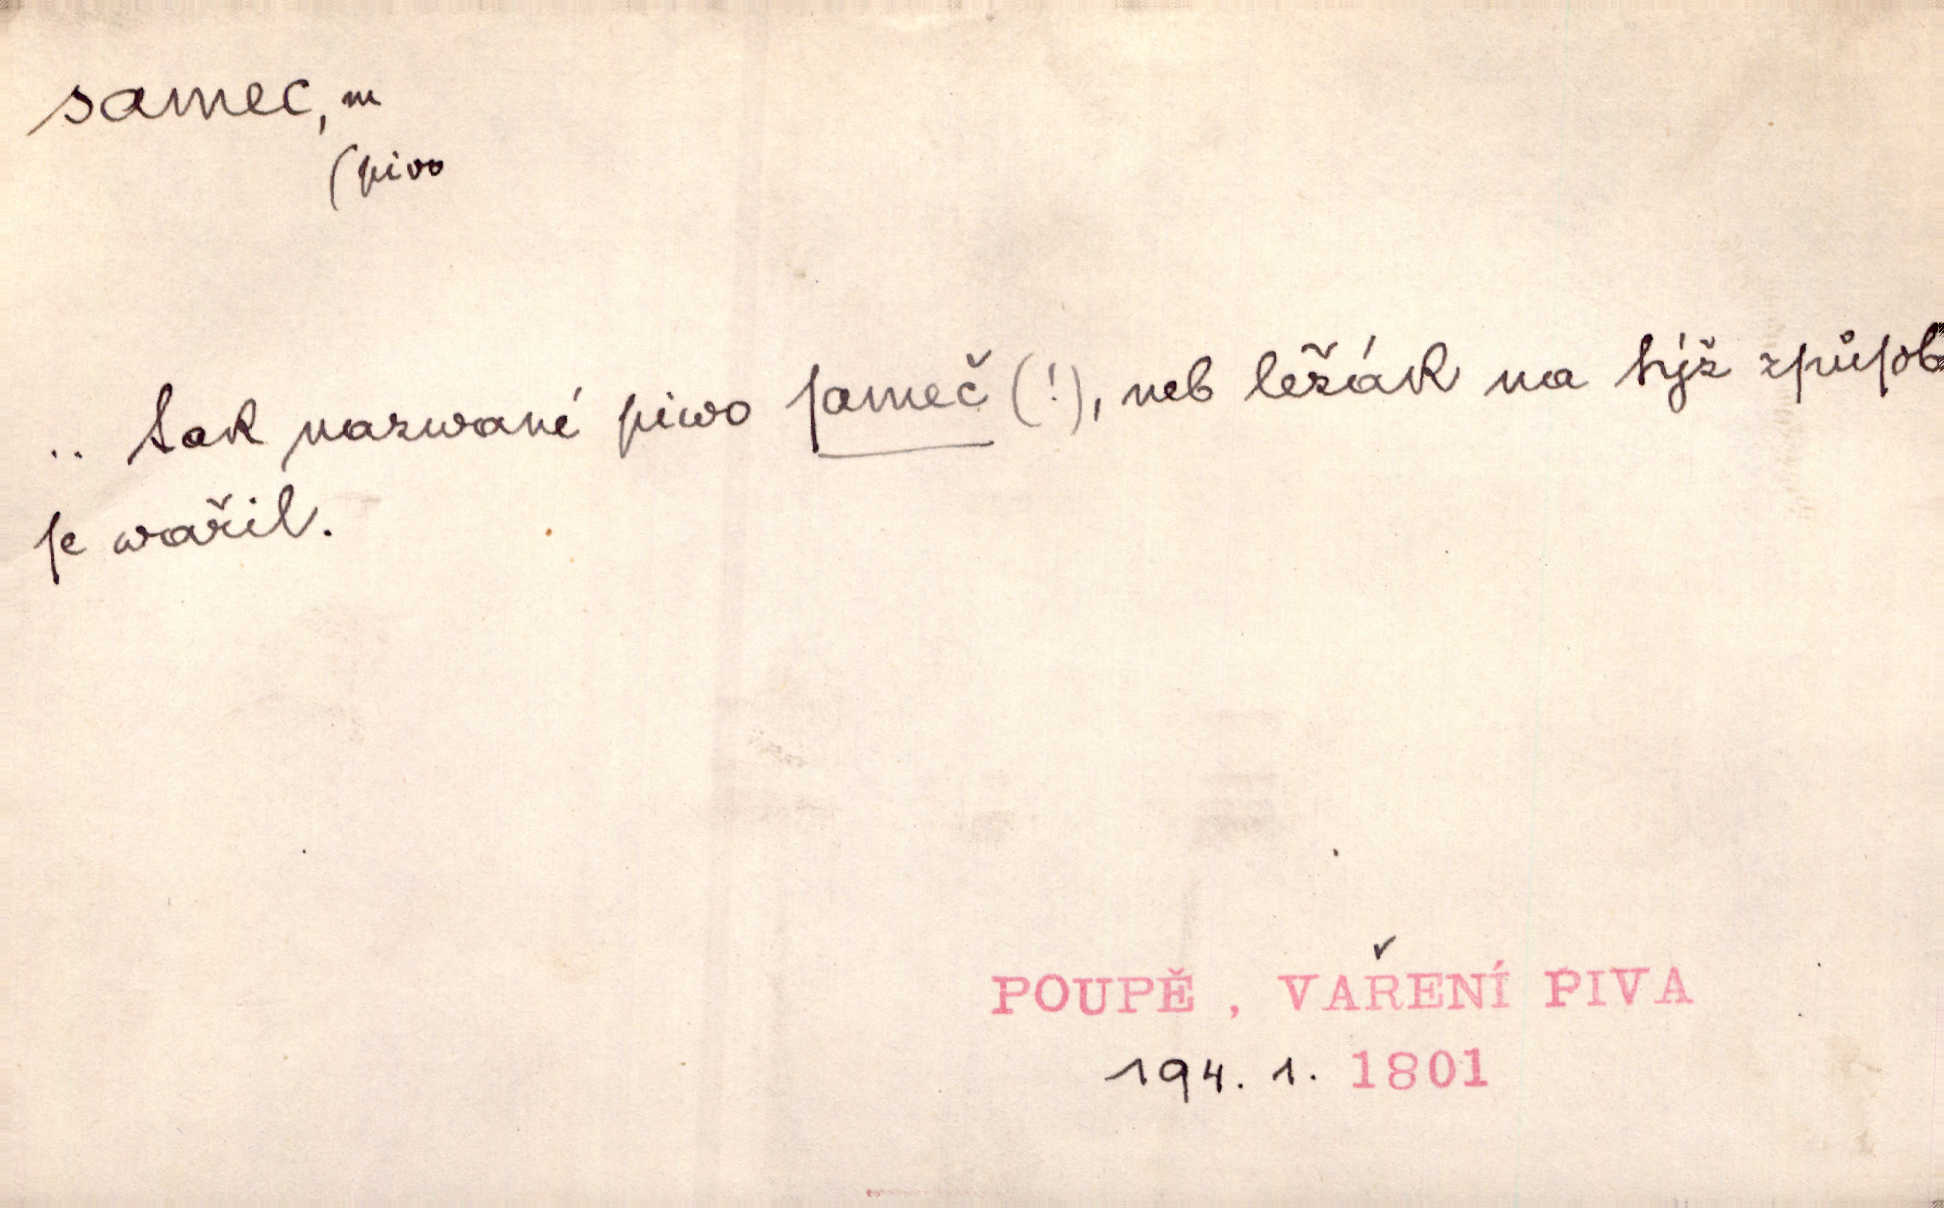 samec, m
(pivo
.. tak nazwané piwo ſameč (!), neb ležák na týž způſob
ſe wařil.
POUPĚ , VAŘENÍ PIVA
194. 1. 1801